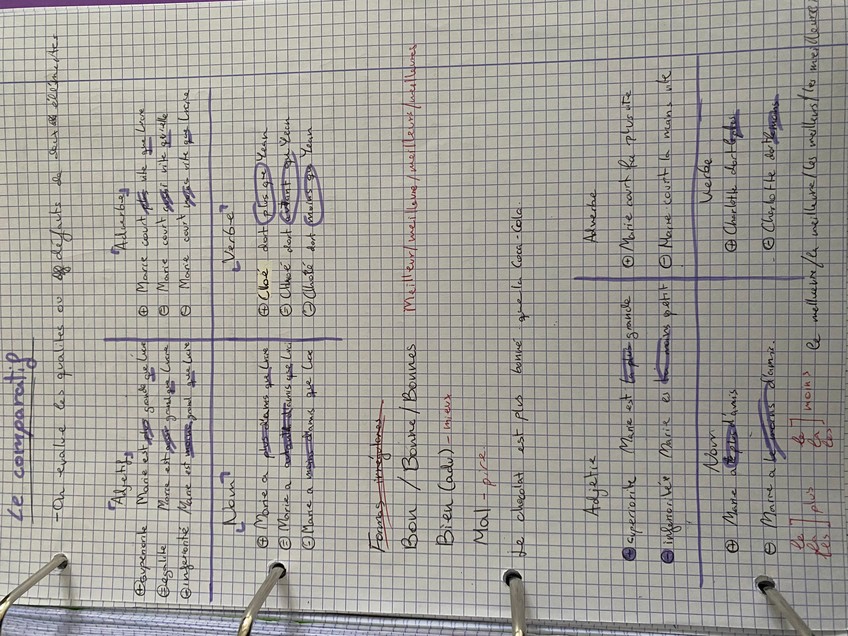 Le comparatif
- On évalue les qualités ou défauts de deux éléments
Adjetif
⊕ supériorité Marie est plus grande que Luce
⊖ égalité Marie est grand que Luce
⊖ infériorité Marie est moins grand que Luce
Adverbe
⊕ Marie court plus vite que Luce
⊖ Marie court vite qu'elle
⊖ Marie court moins vite que Liane
Nom
⊕ Marie a plus d'amis que Luce
⊖ Marie a autant d'amis que Luce
⊖ Marie a moins d'amis que Luce
Verbe
⊕ Cloé dort plus que Yean
⊖ Chloé dort autant que Yean
⊖ Chloé dort moins que Yean
Formes irrégulières
Bon / Bonne / Bonnes Meilleur/meilleure/meilleurs/meilleures
Bien (adv) - mieux
Mal - pire
Le chocolat est plus bonne que la Coca-Cola.
Adjetie
⊕ superiorité Marie est la plus grande
⊖ inferiorités Marie es la moins petit
Adverbe
⊕ Marie court la plus vite
⊖ Marie court la moins vite
Nom
⊕ Marie a le plus d'amis
⊖ Marie a le moins d'amis.
Verbe
⊕ Charlotte dort le plus
⊖ Charlotte dort le moins
le
la
les
] plus
le
la
les
] moins
le meilleur/la meilleure/les meilleurs/les meilleures